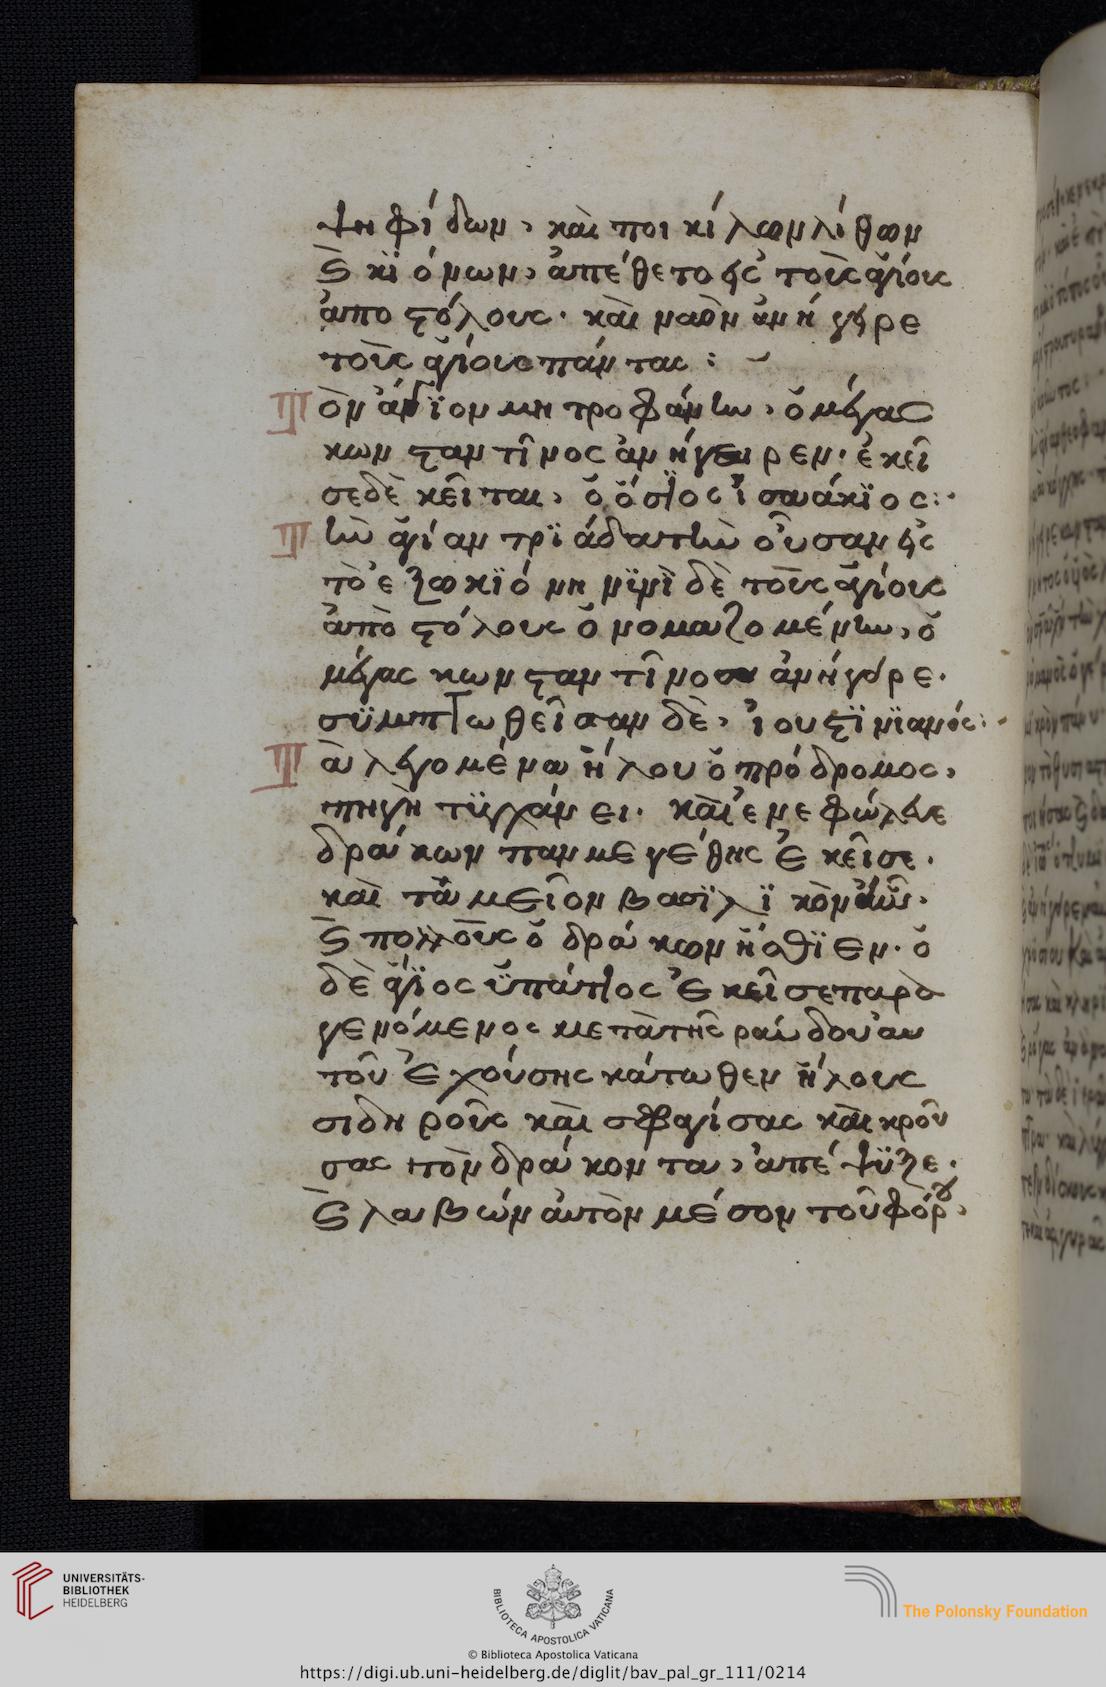 ψηφίδων, καὶ ποικίλων λίθων
ϗ κϊόνων, ἀπέθετο εἰς τοὺς ἁγίους
ἀποστόλους. καὶ ναὸν ἀνήγειρε
τοὺς ἁγίους πάντας :
Τὸν ἅγϊον μητροφάνην, ὁ μέγας
κωνσταντῖνος ἀνήγειρεν. ἐκεῖ
σεδὲ κεῖται, ὁ ὅσϊος ϊσαάκϊος :
Τὴν ἁγίαν τρϊάδα τὴν οὖσαν εἰς
τὸ ἐξωκϊόνη νϊνὶ δὲ τοὺς ἁγίους
ἀποστόλους ὀνομαζομένην, ὁ
μέγας κωνσταντῖνος ἀνήγειρε.
σϋμπτωθεῖσαν δὲ, ϊουστϊνϊανός :
Τὰ λεγόμενα ἥλου ὁ πρόδρομος,
πηγὴ τϋγχάνει. καὶ ἐνεφώλευε
δράκων παμμεγέθης ἐκεῖσε.
καὶ ταμεῖον βασϊλϊκὸν ἦν.
ϗ πολλοὺς ὁ δράκων ἤσθϊεν. ὁ
δὲ ἅγϊος ϋπάτϊος ἐκεῖσε παρα
γενόμενος μετὰ τῆς ράβδου αυ
τοῦ ἐχούσης κάτωθεν ἥλους
σιδηροῦς καὶ σφραγίσας καὶ κρού
σας τὸν δράκοντα, ἀπέψϋξε.
ϗ λαβὼν αὐτὸν μέσον τοῦ φόρου,
UNIVERSITÄTS-
BIBLIOTHEK
HEIDELBERG
BIBLIOTECA APOSTOLICA VATICANA
The Polonsky Foundation
© Biblioteca Apostolica Vaticana
https://digi.ub.uni-heidelberg.de/diglit/bav_pal_gr_111/0214